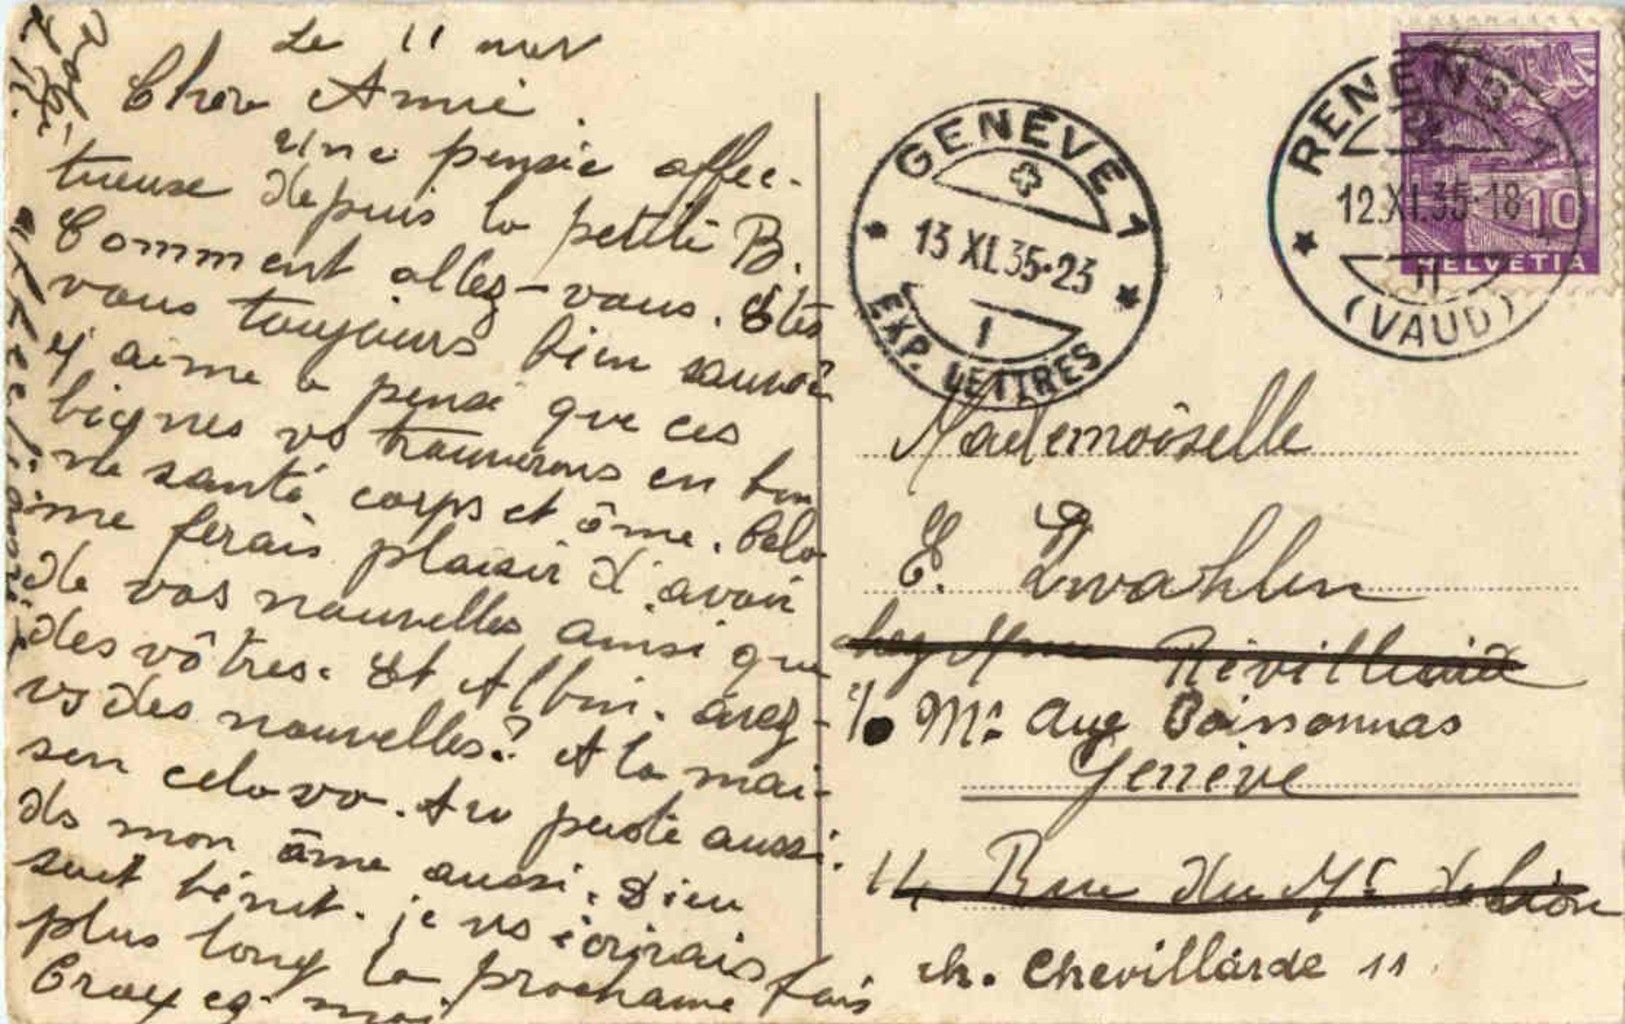 Le 11 nov
Cher Amie.
Une pensie affec-
tueuse depuis la petite B.
Comment allez-vous. Etes
vous toujours bien sauvée
j'aime a pensé que ces
lignes vs trouverons en bon
ne santé corps et âme. Cela
me ferais plaisir d'avoir
de vos nouvelles ainsi que
des vôtres. Et Albin. avez-
vs des nouvelles? A la mai-
son cela va. Au poste aussi.
Ds mon âme aussi. Dieu
soit bénit. je vs écrirais
plus long la prochaine fois
GENÈVE 1
13 XI.35-23
1
EXP. LETTRES
RENENS 1
12.XI.35-18
II
(VAUD)
10
HELVETIA
Mademoiselle
E. Zwahlen
chez Mme Révilliod
c/o Mr Aug Boissonnas
Genève
14 Rue du Mt de Sion
ch. Chevillarde 11